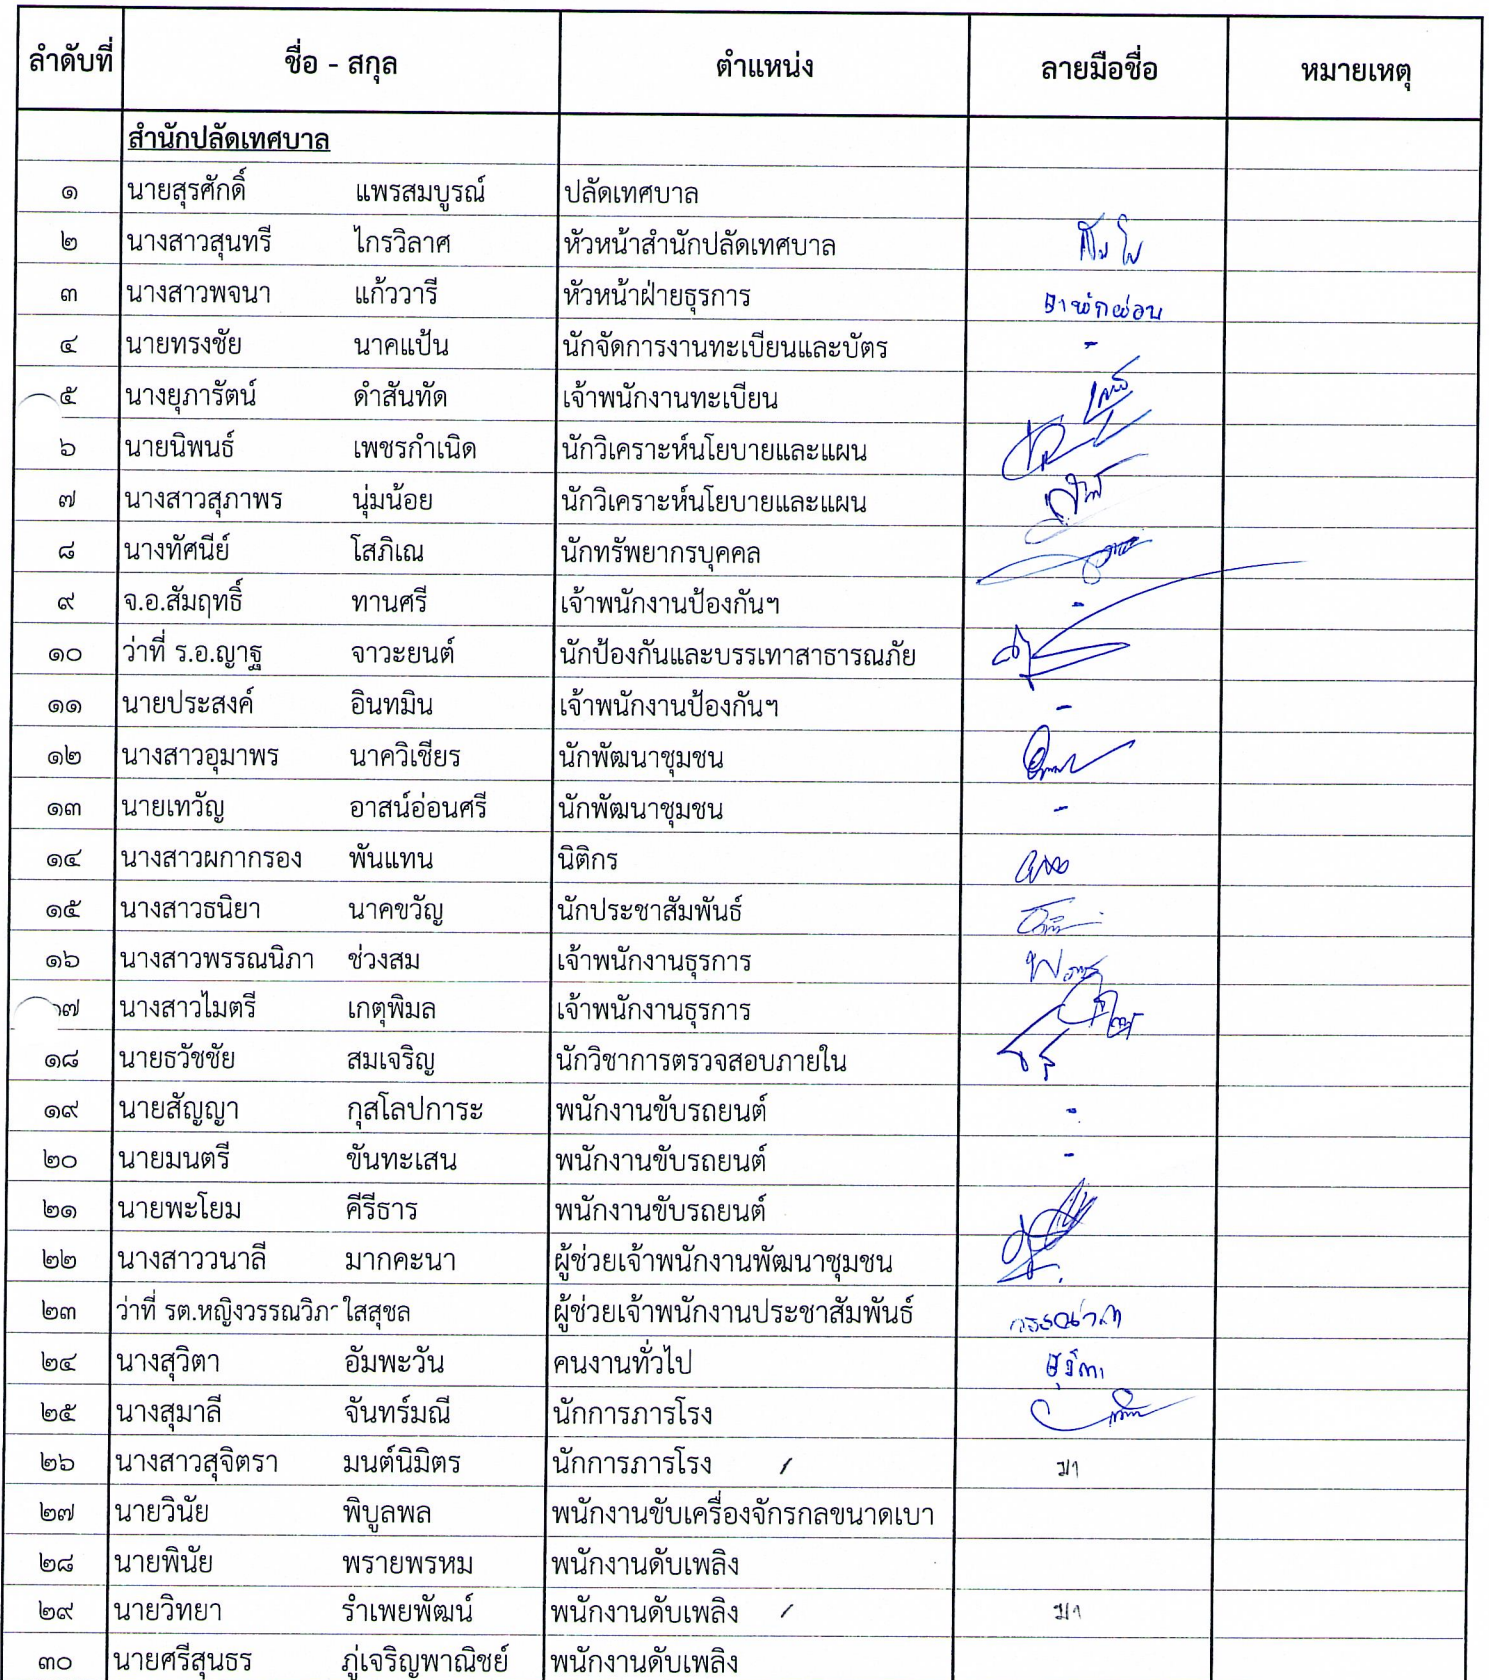 ลำดับที่ ชื่อ - สกุล ตำแหน่ง ลายมือชื่อ หมายเหตุ
สำนักปลัดเทศบาล
๑ นายสุรศักดิ์ แพรสมบูรณ์ ปลัดเทศบาล
๒ นางสาวสุนทรี ไกรวิลาศ หัวหน้าสำนักปลัดเทศบาล
๓ นางสาวพจนา แก้ววารี หัวหน้าฝ่ายธุรการ ลาพักผ่อน
๔ นายทรงชัย นาคแป้น นักจัดการงานทะเบียนและบัตร -
๕ นางยุภารัตน์ ดำสันทัด เจ้าพนักงานทะเบียน
๖ นายนิพนธ์ เพชรกำเนิด นักวิเคราะห์นโยบายและแผน
๗ นางสาวสุภาพร นุ่มน้อย นักวิเคราะห์นโยบายและแผน
๘ นางทัศนีย์ โสภิเณ นักทรัพยากรบุคคล
๙ จ.อ.สัมฤทธิ์ ทานศรี เจ้าพนักงานป้องกันฯ -
๑๐ ว่าที่ ร.อ.ญาฐ จาวะยนต์ นักป้องกันและบรรเทาสาธารณภัย
๑๑ นายประสงค์ อินทมิน เจ้าพนักงานป้องกันฯ -
๑๒ นางสาวอุมาพร นาควิเชียร นักพัฒนาชุมชน
๑๓ นายเทวัญ อาสน์อ่อนศรี นักพัฒนาชุมชน -
๑๔ นางสาวผกากรอง พันแทน นิติกร
๑๕ นางสาวธนิยา นาคขวัญ นักประชาสัมพันธ์
๑๖ นางสาวพรรณนิภา ช่วงสม เจ้าพนักงานธุรการ
๗ นางสาวไมตรี เกตุพิมล เจ้าพนักงานธุรการ
๑๘ นายธวัชชัย สมเจริญ นักวิชาการตรวจสอบภายใน
๑๙ นายสัญญา กุสโลปการะ พนักงานขับรถยนต์ -
๒๐ นายมนตรี ขันทะเสน พนักงานขับรถยนต์ -
๒๑ นายพะโยม คีรีธาร พนักงานขับรถยนต์
๒๒ นางสาววนาลี มากคะนา ผู้ช่วยเจ้าพนักงานพัฒนาชุมชน
๒๓ ว่าที่ รต.หญิงวรรณวิภา ใสสุชล ผู้ช่วยเจ้าพนักงานประชาสัมพันธ์ วรรณวิภา
๒๔ นางสุวิตา อัมพะวัน คนงานทั่วไป สุวิตา
๒๕ นางสุมาลี จันทร์มณี นักการภารโรง
๒๖ นางสาวสุจิตรา มนต์นิมิตร นักการภารโรง / มา
๒๗ นายวินัย พิบูลพล พนักงานขับเครื่องจักรกลขนาดเบา
๒๘ นายพินัย พรายพรหม พนักงานดับเพลิง
๒๙ นายวิทยา รำเพยพัฒน์ พนักงานดับเพลิง / มา
๓๐ นายศรีสุนธร ภู่เจริญพาณิชย์ พนักงานดับเพลิง